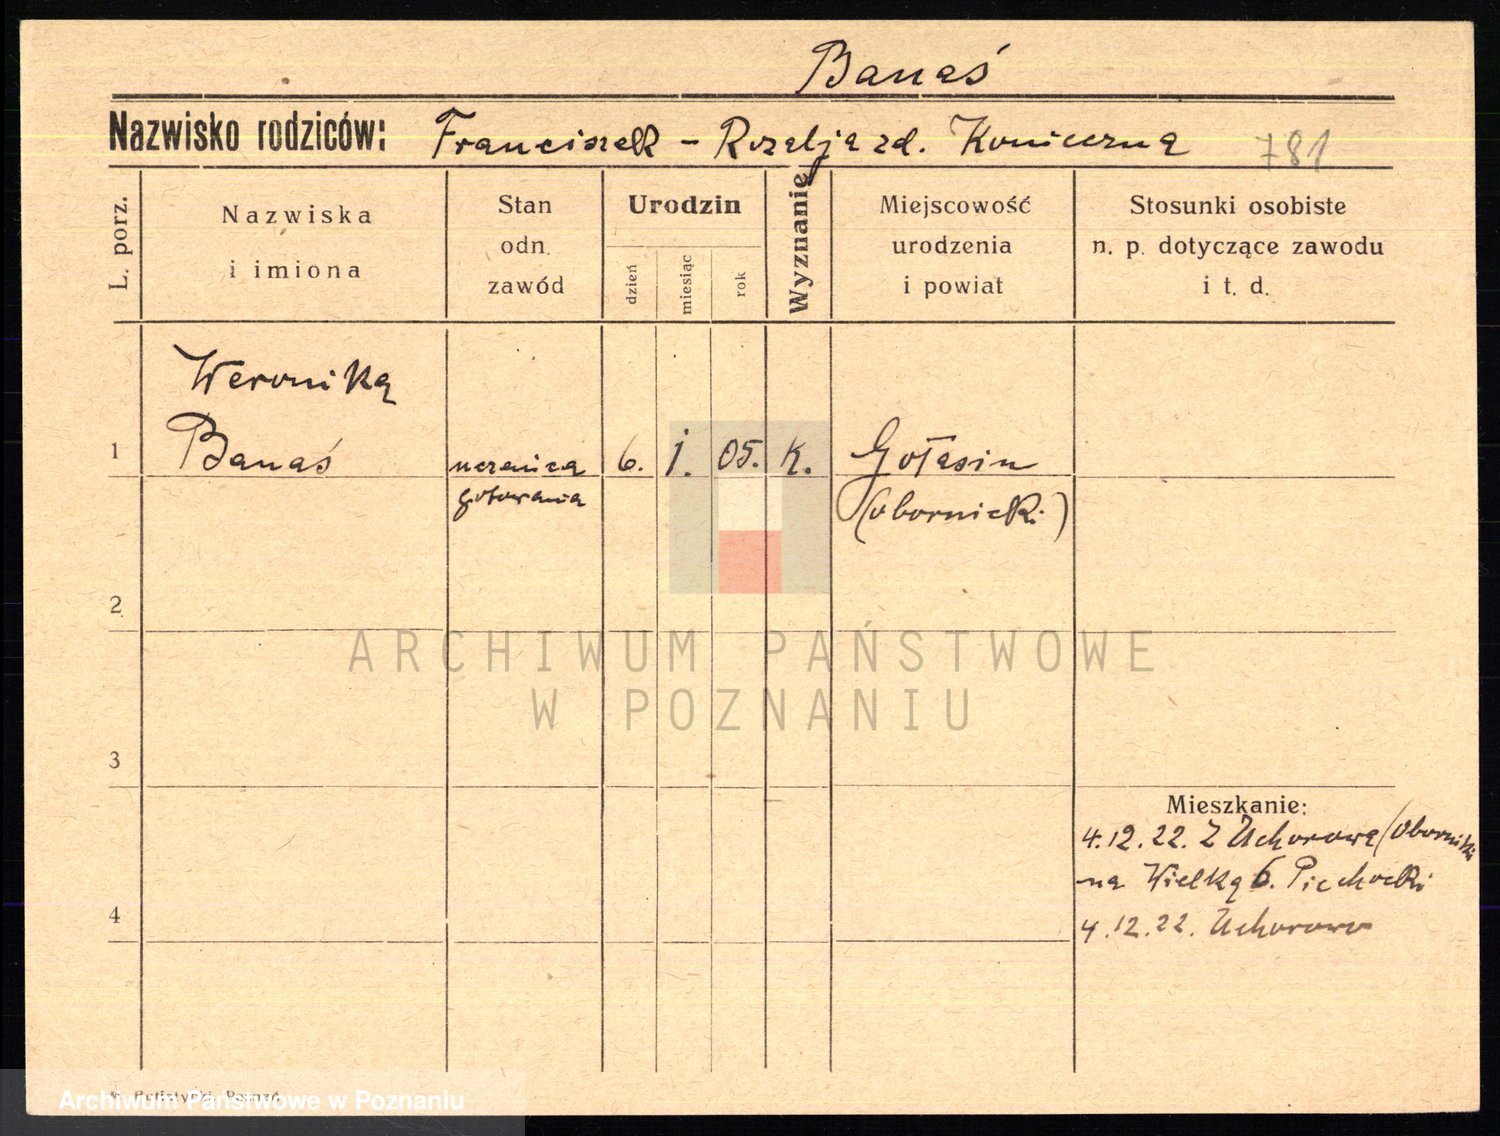 Banaś
Nazwisko rodziców: Franciszek - Rozalja zd. Konieczna 781
L. porz.
Nazwiska
i imiona
Stan
odn.
zawód
Urodzin
dzień
miesiąc
rok
Wyznanie
Miejscowość
urodzenia
i powiat
Stosunki osobiste
n. p. dotyczące zawodu
i t. d.
Weronika
1 Banaś uczenica 6. 1. 05. k. Gołasin
gotowania (obornicki)
2
ARCHIWUM PAŃSTWOWE
W POZNANIU
3
Mieszkanie:
4.12.22. Z Uchorowa (Oborniki
na Wielką 6. Piechocki
4 4.12.22. Uchorowo
Poznań
Archiwum Państwowe w Poznaniu